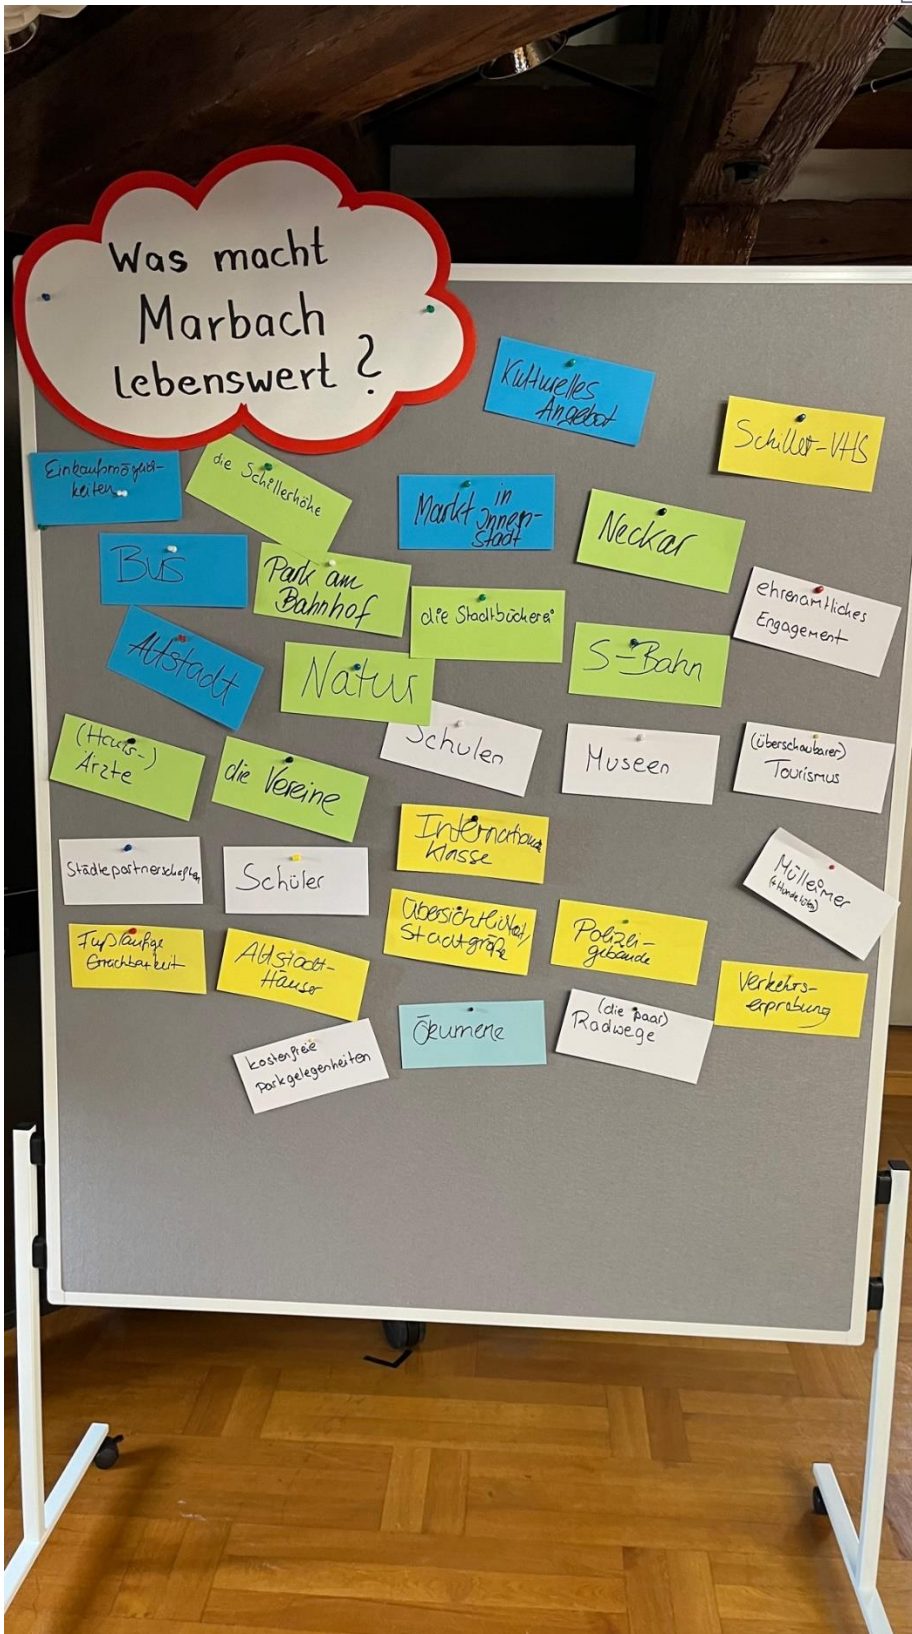 Was macht
Marbach
lebenswert?
Kulturelles
Angebot
Schiller-VHS
Einkaufmöglich-
keiten
die Schillerhöhe
Markt in
Innen-
stadt
Neckar
Bus
Park am
Bahnhof
die Stadtbücherei
ehrenamtliches
Engagement
Altstadt
Natur
S-Bahn
(Haus-)
Ärzte
die Vereine
Schulen
Museen
(überschaubarer)
Tourismus
Internationale
Klasse
Städtepartnerschaften
Schüler
Mülleimer
Fußläufige
Erreichbarkeit
Altstadt-
Häuser
Übersichtlichkeit/
Stadtgröße
Polizei-
gebäude
Verkehrs-
erprobung
kostenfreie
Parkgelegenheiten
Ökumene
(die paar)
Radwege